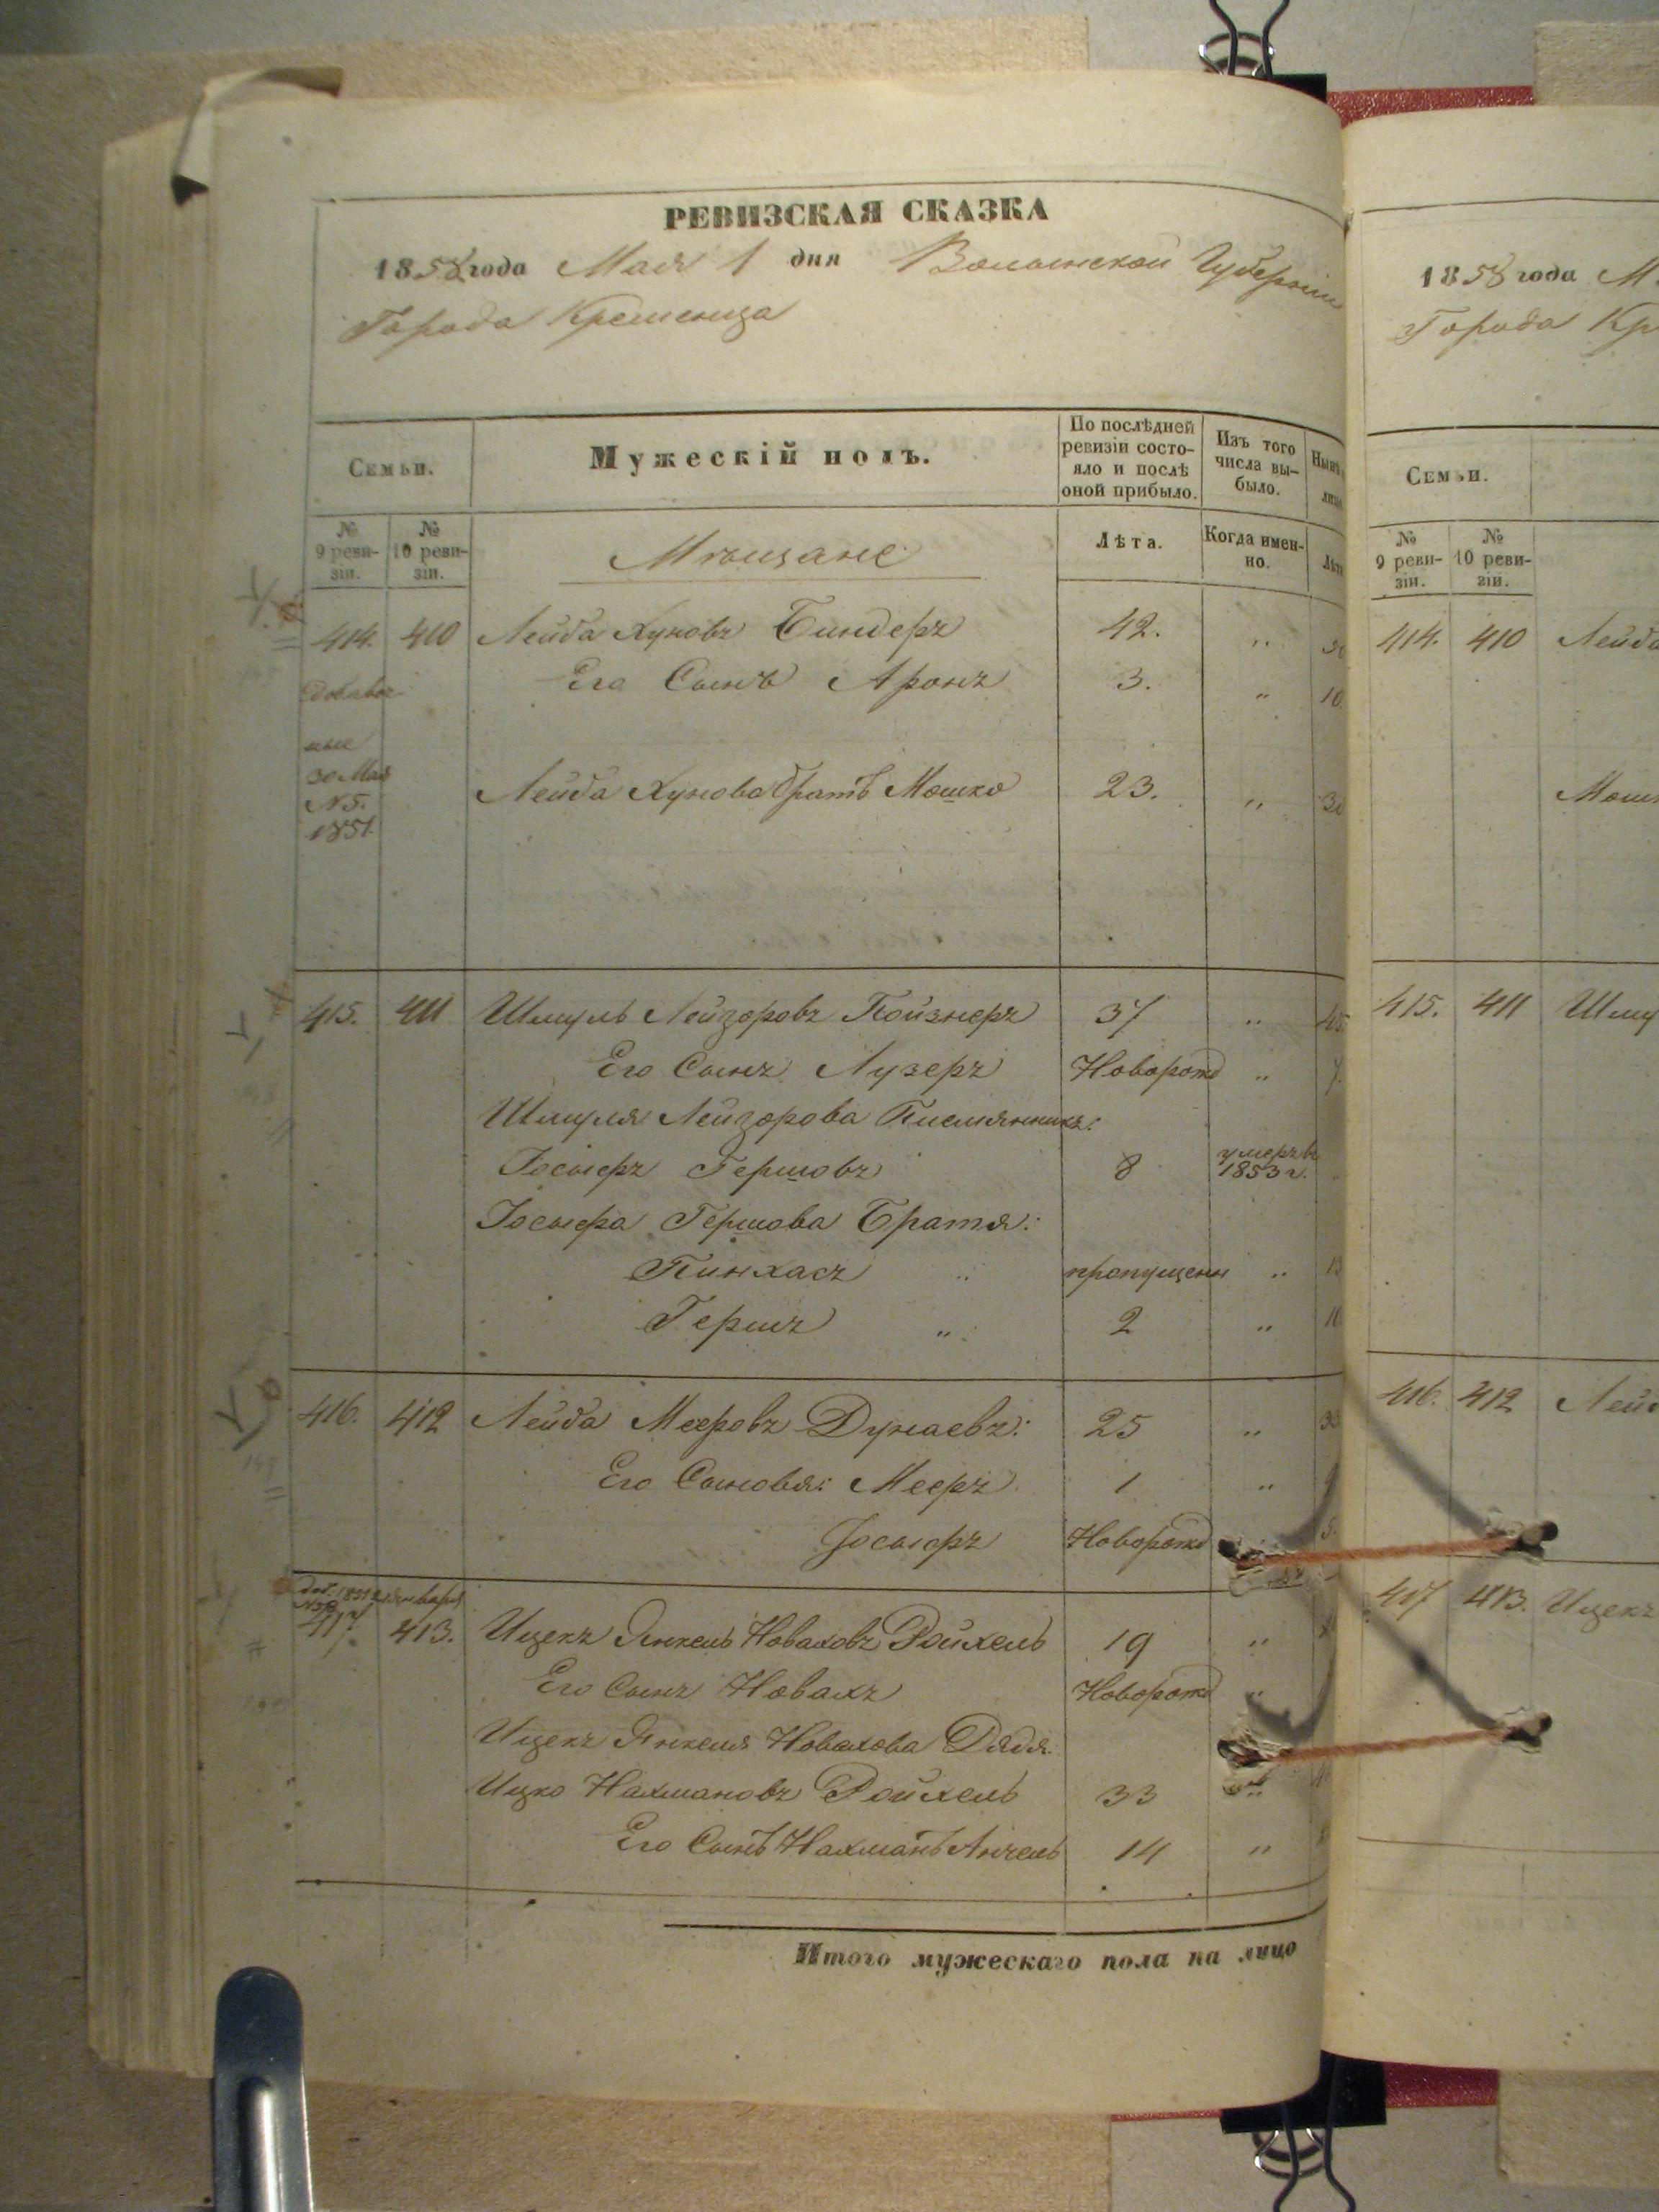 РЕВИЗСКАЯ СКАЗКА
1858 года Мая 1 дня Волынской Губерніи
Города Кременца
Семьи.
Мужескій полъ.
По послѣдней ревизіи состо-
яло и послѣ оной прибыло.
Изъ того числа вы-
было.
№ 9 реви-
зіи.
№ 10 реви-
зіи.
Мѣщане
Лѣта.
Когда имен-
но.
414. 410 Лейба Хуновъ Биндеръ 42. „
Его Сынъ Аронъ 3. „ 10
добавоч
ные
30 Мая
№5.
1851.
Лейба Хунова братъ Мошко 23. „
415. 411 Шмуль Лейзоровъ Пойзнеръ 37 „
Его Сынъ Лузеръ Новорожд „ 7.
Шмуля Лейзорова Племянникъ:
Іосыфъ Гершовъ 8 умеръ въ 1853 г.
Іосыфа Гершова Братя:
Пинхасъ „ пропущенн „
Гершъ „ 2 „
416. 412 Лейба Мееровъ Дунаевъ: 25 „
Его Сыновья: Мееръ 1 „
Іосыфъ Новорожд „ 5.
доб. 1851 января
417. 413. Ицекъ Янкель Новаховъ Ройхель 19 „
Его Сынъ Новахъ Новорожд „
Ицекъ Янкеля Новахова Дядя:
Ицко Нахмановъ Ройхель 33 „
Его Сынъ Нахманъ Анчель 14 „
Итого мужескаго пола на лицо
1858 года М.
Города Кр
Семьи.
№ 9 реви-
зіи.
№ 10 реви-
зіи.
414. 410 Лейба
Мошк
415. 411 Шму
416. 412 Лейб
417 413. Ицекъ